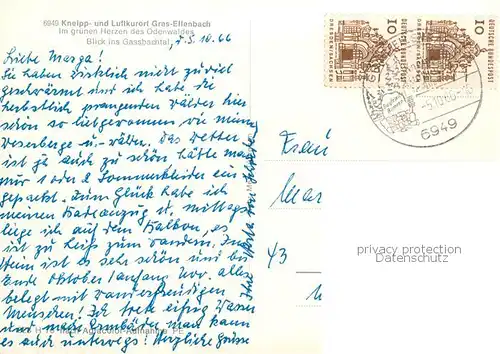 6949 Kneipp- und Luftkurort Gras-Ellenbach
Im grünen Herzen des Odenwaldes
Blick ins Gassbachtal
d. 5. 10. 66
Liebe Marga!
Sie haben wirklich nicht zuviel
geschwärmt und ich habe die
herbstlich prangenden Wälder hier
schon so liebgewonnen wie meine
Weserberge u. -wälder. Das Wetter
ist ja auch zu schön hätte man
nur 1 oder 2 Sommerkleider ein
gepackt. Zum Glück habe ich
meinen Badeanzug u. mittags
liege ich auf dem Balkon, es
ist zu heiß zum wandern. Im
Heim ist es sehr schön und bis
Ende Oktober Anfang Nov. alles
belegt mit wanderfreudigen
Menschen! Ich trete eifrig Wasser
und mache Armbäder man kann
es auch unterwegs! Herzliche Grüße
Agfacolor-Aufnahme
DEUTSCHE BUNDESPOST
10
DRESDEN/SACHSEN
DEUTSCHE BUNDESPOST
10
DRESDEN/SACHSEN
6949
Frau
Mar
43
privacy protection
Datenschutz